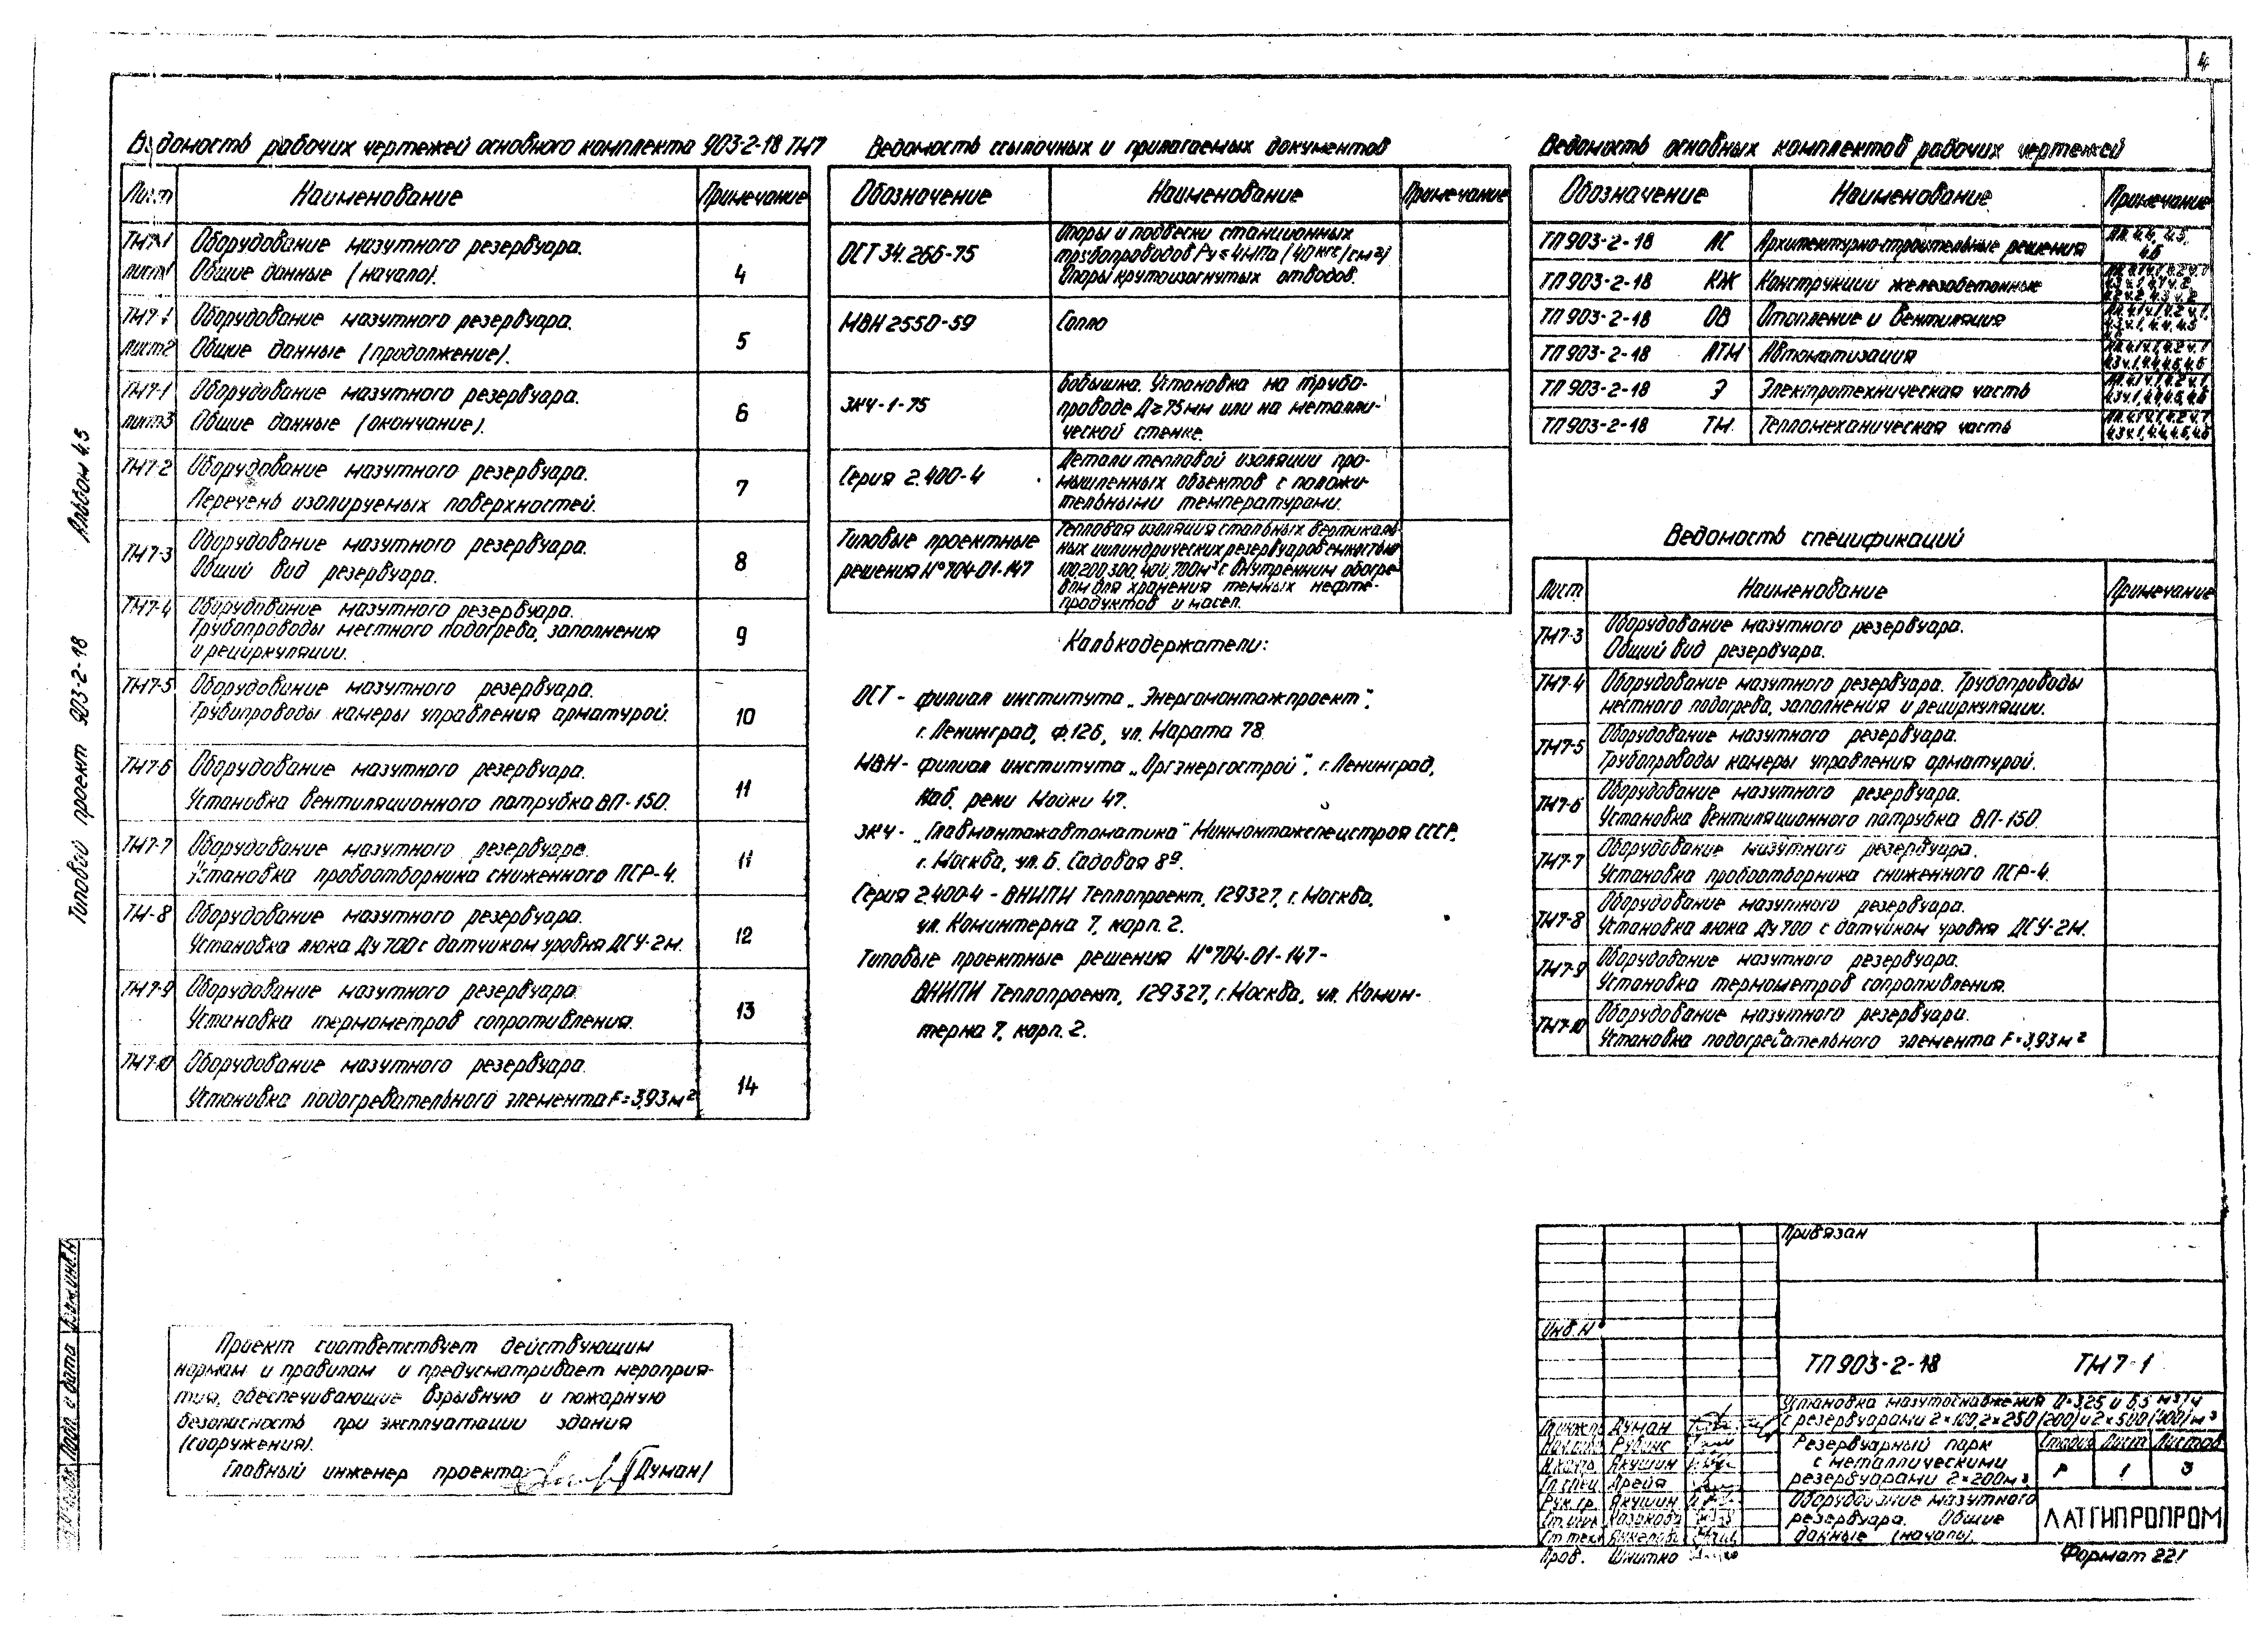 4
Ведомость рабочих чертежей основного комплекта 903-2-18 ТМ7
Лист Наименование Примечание
ТМ7-1 Оборудование мазутного резервуара.
лист1 Общие данные (начало). 4
ТМ7-1 Оборудование мазутного резервуара.
лист2 Общие данные (продолжение). 5
ТМ7-1 Оборудование мазутного резервуара.
лист3 Общие данные (окончание). 6
ТМ7-2 Оборудование мазутного резервуара.
Перечень изолируемых поверхностей. 7
ТМ7-3 Оборудование мазутного резервуара.
Общий вид резервуара. 8
ТМ7-4 Оборудование мазутного резервуара.
Трубопроводы местного подогрева, заполнения 9
и рециркуляции.
ТМ7-5 Оборудование мазутного резервуара.
Трубопроводы камеры управления арматурой. 10
ТМ7-6 Оборудование мазутного резервуара.
Установка вентиляционного патрубка ВП-150. 11
ТМ7-7 Оборудование мазутного резервуара.
Установка пробоотборника сниженного ПСР-4. 11
ТМ-8 Оборудование мазутного резервуара.
Установка люка Ду 700 с датчиком уровня ДСУ-2М. 12
ТМ7-9 Оборудование мазутного резервуара.
Установка термометров сопротивления. 13
ТМ7-10 Оборудование мазутного резервуара.
Установка подогревательного элемента F=3,93м² 14
Ведомость ссылочных и прилагаемых документов
Обозначение Наименование Примечание
ОСТ 34.266-75 Опоры и подвески станционных
трубопроводов Ру≤4МПа (40кгс/см²)
Опоры крутоизогнутых отводов.
МВН 2550-59 Сопло
ЗКЧ-1-75 Бобышка. Установка на трубо-
проводе Д≥75мм или на металли-
ческой стенке.
Серия 2.400-4 Детали тепловой изоляции про-
мышленных объектов с положи-
тельными температурами.
Типовые проектные решения №704-01-147 Тепловая изоляция стальных вертикаль-
ных цилиндрических резервуаров емкостью
100,200,300,400,700м³ с внутренним обогре-
вом для хранения темных нефте-
продуктов и масел.
Калькодержатели:
ОСТ - филиал института „Энергомонтажпроект",
г. Ленинград, ф.126, ул. Марата 78.
МВН - филиал института „Оргэнергострой", г. Ленинград,
Наб. реки Мойки 47.
ЗКЧ - „Главмонтажавтоматика" Минмонтажспецстроя СССР,
г. Москва, ул. Б. Садовая 8ª.
Серия 2.400-4 - ВНИПИ Теплопроект, 129327, г. Москва,
ул. Коминтерна 7, корп. 2.
Типовые проектные решения №704-01-147-
ВНИПИ Теплопроект, 129327, г. Москва, ул. Комин-
терна 7, корп. 2.
Ведомость основных комплектов рабочих чертежей
Обозначение Наименование Примечание
ТП 903-2-18 АС Архитектурно-строительные решения ал. 4.4, 4.5,
4.6
ТП 903-2-18 КЖ Конструкции железобетонные
ТП 903-2-18 ОВ Отопление и вентиляция
ТП 903-2-18 АТМ Автоматизация
ТП 903-2-18 Э Электротехническая часть
ТП 903-2-18 ТМ Тепломеханическая часть
Ведомость спецификаций
Лист Наименование Примечание
ТМ7-3 Оборудование мазутного резервуара.
Общий вид резервуара.
ТМ7-4 Оборудование мазутного резервуара. Трубопроводы
местного подогрева, заполнения и рециркуляции.
ТМ7-5 Оборудование мазутного резервуара.
Трубопроводы камеры управления арматурой.
ТМ7-6 Оборудование мазутного резервуара.
Установка вентиляционного патрубка ВП-150.
ТМ7-7 Оборудование мазутного резервуара.
Установка пробоотборника сниженного ПСР-4.
ТМ7-8 Оборудование мазутного резервуара.
Установка люка Ду 700 с датчиком уровня ДСУ-2М.
ТМ7-9 Оборудование мазутного резервуара.
Установка термометров сопротивления.
ТМ7-10 Оборудование мазутного резервуара.
Установка подогревательного элемента F=3,93м²
Альбом 4.5
Типовой проект 903-2-18
Взам.инв.Н
Подп. и дата
Проект соответствует действующим
нормам и правилам и предусматривает мероприя-
тия, обеспечивающие взрывную и пожарную
безопасность при эксплуатации здания
(сооружения).
Главный инженер проекта /Думан/
Привязан
Инв. Н
ТП 903-2-18 ТМ7-1
Установка мазутоснабжения Q=3,25 и 6,5 м3/ч
с резервуарами 2×100, 2×250 (200) и 2×500 (400) м³
Думан
Рубинс
Н.конт Якушин
Гл.спец Арейя
Рук.гр. Якушин
Казакова
Ст.техн
Пров. Шнитко
Резервуарный парк
с металлическими
резервуарами 2×200м³
Стадия Лист Листов
Р 1 3
Оборудование мазутного
резервуара. Общие
данные (начало).
ЛАТГИПРОПРОМ
Формат 22Г